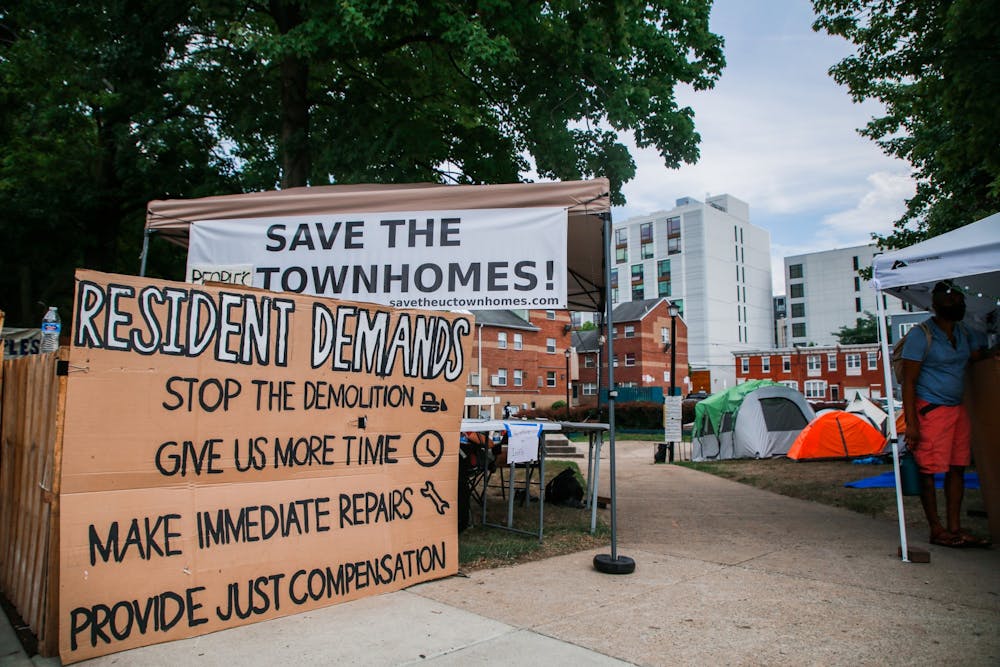 SAVE THE
PEOPLE'S
TOWNHOMES!
savetheuctownhomes.com
RESIDENT DEMANDS
STOP THE DEMOLITION
GIVE US MORE TIME
MAKE IMMEDIATE REPAIRS
PROVIDE JUST COMPENSATION
LES